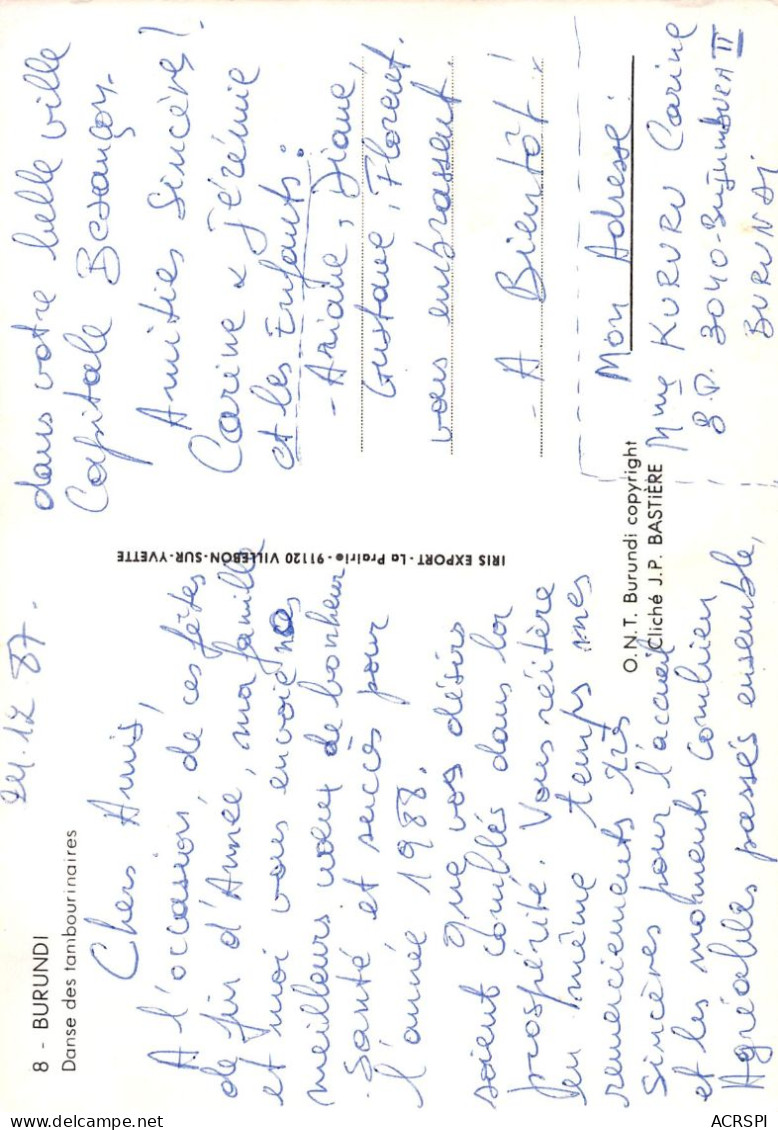 8 - BURUNDI
Danse des tambourinaires
24.12.87.
Chers Amis,
A l'occasion, de ces fêtes
de fin d'Année, ma famille
et moi vous envoie nos
meilleurs vœux de bonheur
Santé et succès pour
l'année 1988.
Que vos désirs
soient comblés dans la
prospérité. Vous réitère
en même temps mes
remerciements très
Sincères pour l'accueil
et les moments combien
Agréables passés ensemble,
IRIS EXPORT - La Prairie - 91120 VILLEBON-SUR-YVETTE
O.N.T. Burundi copyright
Cliché J.P. BASTIÈRE
dans votre belle ville
Capitale Besançon.
Amitiés Sincères!
Carine & Jérémie
et les Enfants:
- Ariane, Diane,
Gustave, Florent.
vous embrassent.
- A Bientôt!
Mon Adresse:
Mme KURURU Carine
B.P. 3040-BUJUMBURA II
BURUNDI
ACRSPI